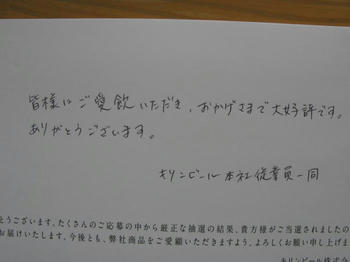 皆様にご愛飲いただき、おかげさまで大好評です。
ありがとうございます。
キリンビール本社従業員一同
とうございます。たくさんのご応募の中から厳正な抽選の結果、貴方様がご当選されました
お届けいたします。今後とも、弊社商品をご愛顧いただきますよう、よろしくお願い申し上げま
キリンビール株式会